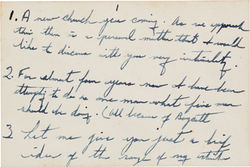 1. A new church is coming. As we approach
this there is a personal matter that I would
like to discuss with you very
2. For about four years now I have been
trying to do as one man what five men
should be doing. (All because of
3. Let me give you just a brief
idea of the range of my